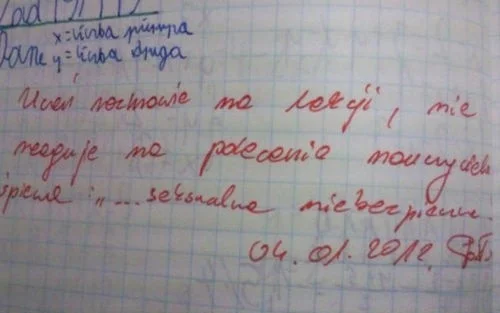 Zad 1
Dane x = liczba pierwsza
y = liczba druga
Uczeń rozmawia na lekcji, nie
reaguje na polecenia nauczyciela
śpiewa: "... seksualna niebezpieczna.
04.01.2012.